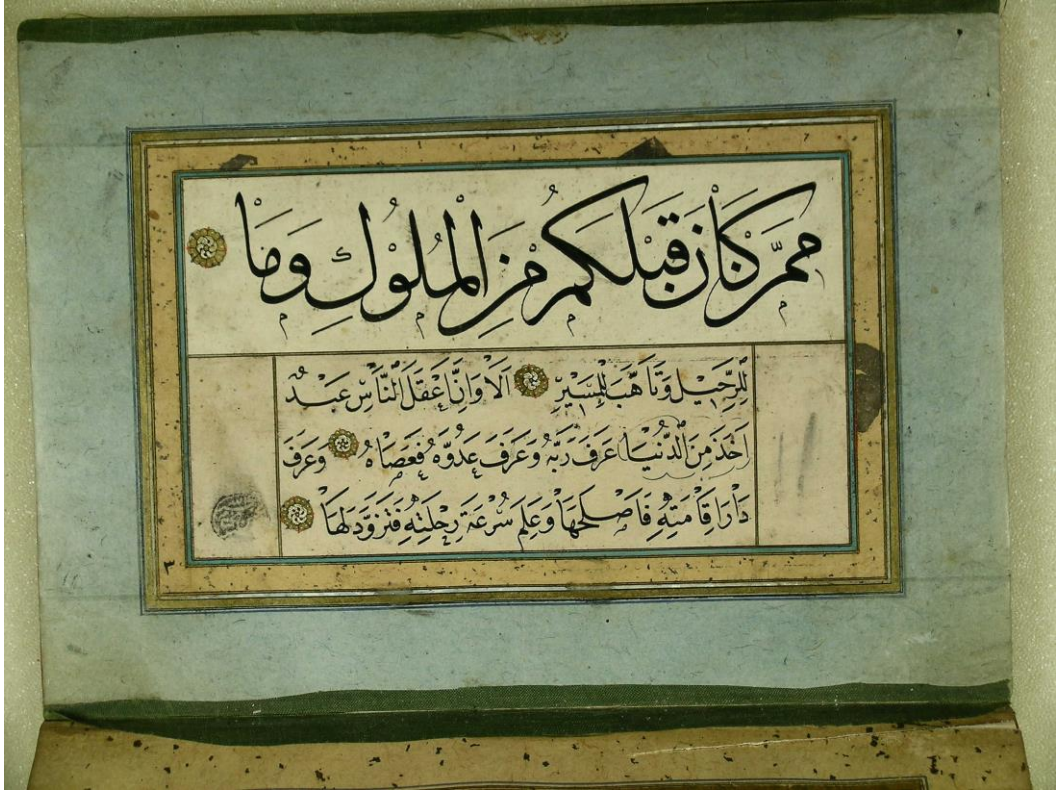 مِمَّنْ كَانَ قَبْلَكُمْ مِنَ الْمُلُوكِ وَمَا
لِلرَّحِيلِ وَتَأَهَّبَ لِلْمَسِيرِ أَلَا وَإِنَّ أَعْقَلَ النَّاسِ عَبْدٌ
أَخَذَ مِنَ الدُّنْيَا عَرَفَ رَبَّهُ وَعَرَفَ عَدُوَّهُ فَعَصَاهُ وَعَرَفَ
دَارَ إِقَامَتِهِ فَأَصْلَحَهَا وَعَلِمَ سُرْعَةَ رِحْلَتِهِ فَتَزَوَّدَ لَهَا
٣